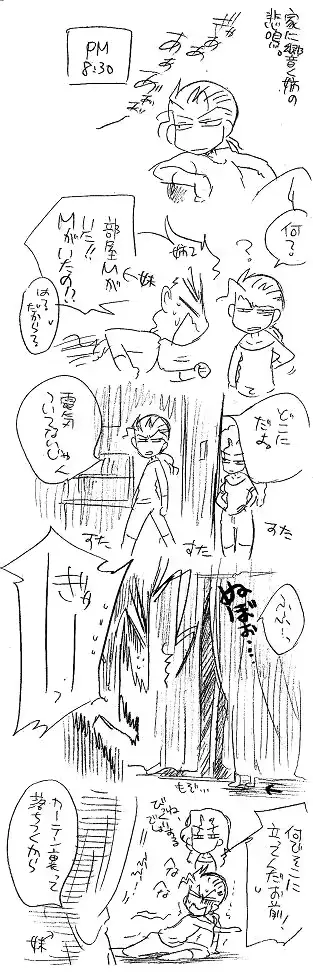 家に響く姉の
悲鳴。
PM
8:30
ぎゃ
あぁ
あぁ
あぁ
何?
?
姉2
←妹
部屋にMが
いた!!
Mがいたの!?
は?
だから?
どこに
だよ
電気
ついてないじゃん
すた
すた
すた
ふふーん
ぬぼぉ…
ぎゃーーーっ
もぞ…
←
何でそこに
立ってんだお前!
びっくり
へな
へな
カーテン裏って
落ちつくから
妹